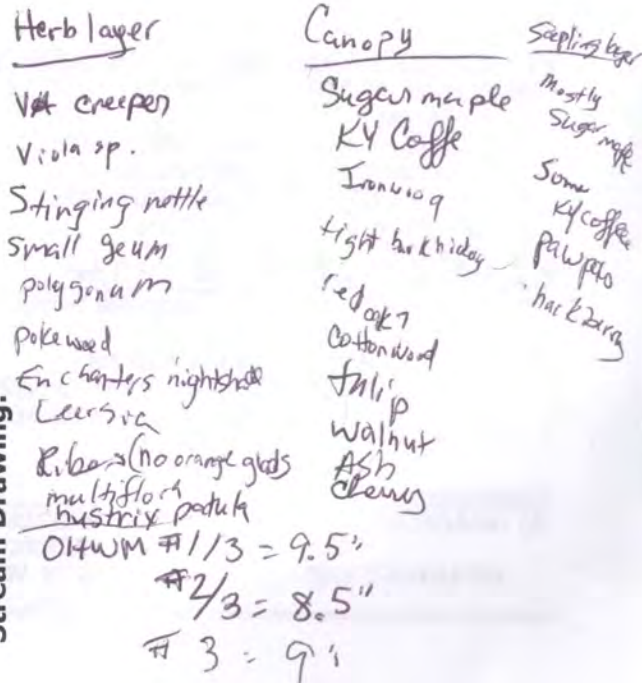 Stream Drawing:
Herb layer
VA creeper
Viola sp.
Stinging nettle
Small geum
polygonum
pokeweed
Enchanters nightshade
Leersia
Ribes (no orange glads
multiflora
hystrix patula
OHWM #1/3 = 9.5"
#2/3 = 8.5"
# 3 = 9"
Canopy
Sugar maple
KY Coffe
Ironwood
tight bark hickory
red oak
Cottonwood
tulip
Walnut
Ash
Cherry
Sapling layer
Mostly
Sugar maple
Some
KY coffee
Hackberry